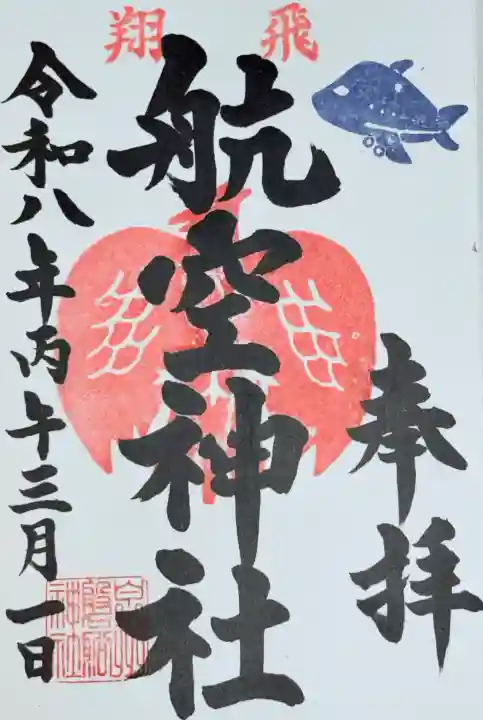 飛翔
奉拝
航空神社
令和八年丙午三月一日
泉州
磐船
神社